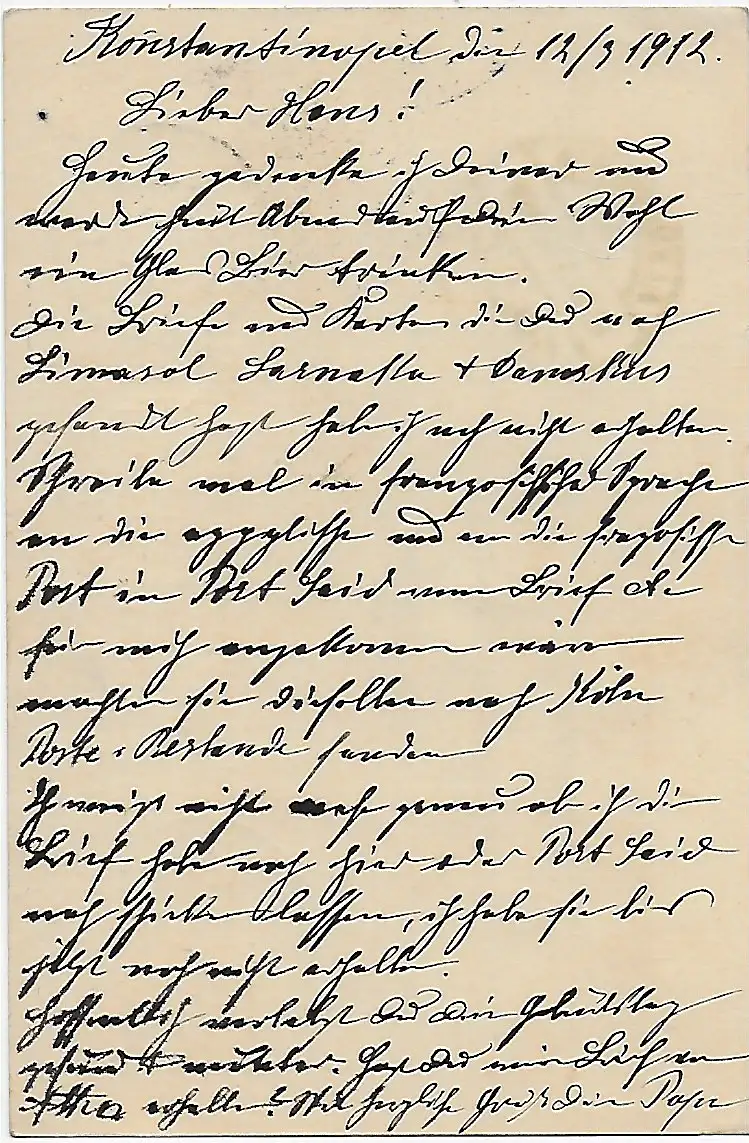 Konstantinopel den 12/3 1912.
Lieber Hans!
Heute gedenke ich Deiner und
werde heut Abend auf Dein Wohl
ein Glas Bier trinken.
Die Briefe und Karten die Du nach
Limasol Larnakka + Damaskus
gesandt hast habe ich noch nicht erhalten.
Schreibe mal in französische Sprache
an die egyptische und an die französische
Post in Port Said wenn Brief
für mich angekommen wären
möchten sie dieselben nach Köln
Poste-Restande senden
Ich weiß nicht mehr genau ob ich die
Brief habe nach hier oder Port Said
nach schicken lassen, ich habe sie bis
jetzt noch nicht erhalten.
Hoffentlich verlebst Du Dein Geburtstag
gesund + munter. Hast Du mein Brief
erhalten? Mit herzliche Gruß Dein Papa